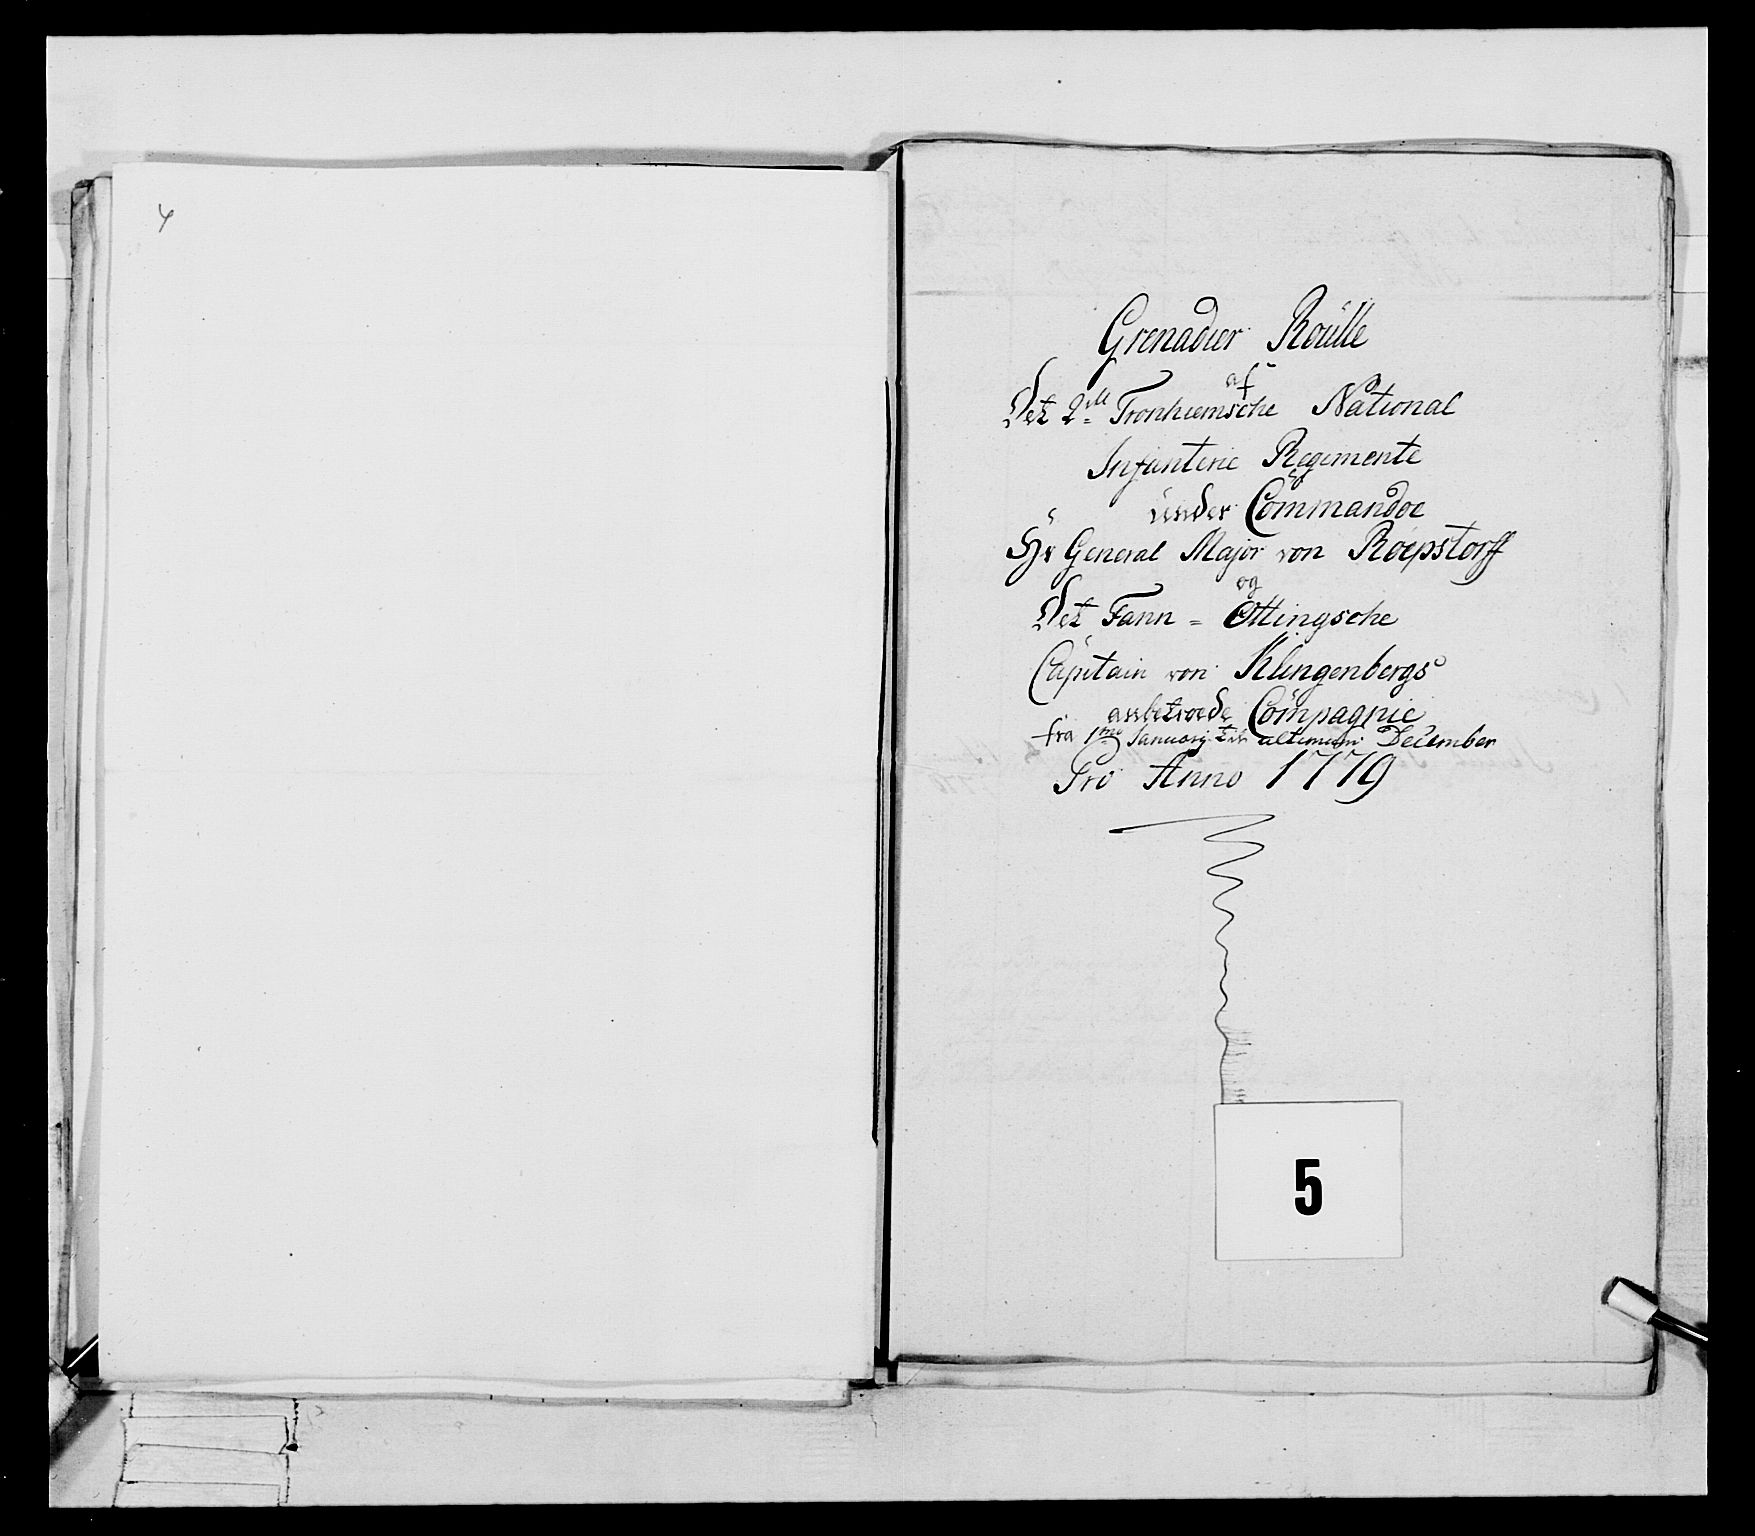 4
Grenadier Roülle
af
Det 2det Tronhiemsche National
Infanterie Regimente
ünder Commandoe
Hr General Major von Roepstorff
og
Det Fann = Ottingsche
Capitain von Klingenbergs
anbetroede Compagnie
fra 1me Januarij til ultimum December
Pro Anno 1779
5